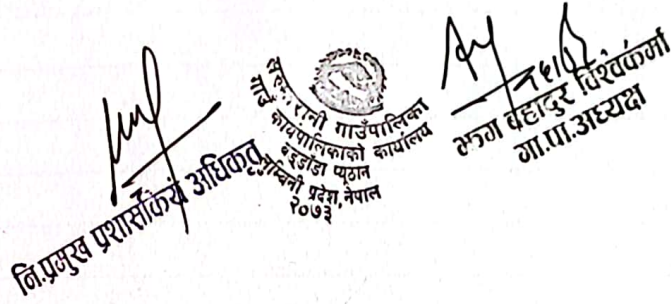 नि.प्रमुख प्रशासकिय अधिकृत
रानी गाउँपालिका
गाउँ कार्यपालिकाको कार्यालय
प्यूठान
लुम्बिनी प्रदेश, नेपाल
२०७३
बहादुर विश्वकर्मा
गा.पा.अध्यक्ष